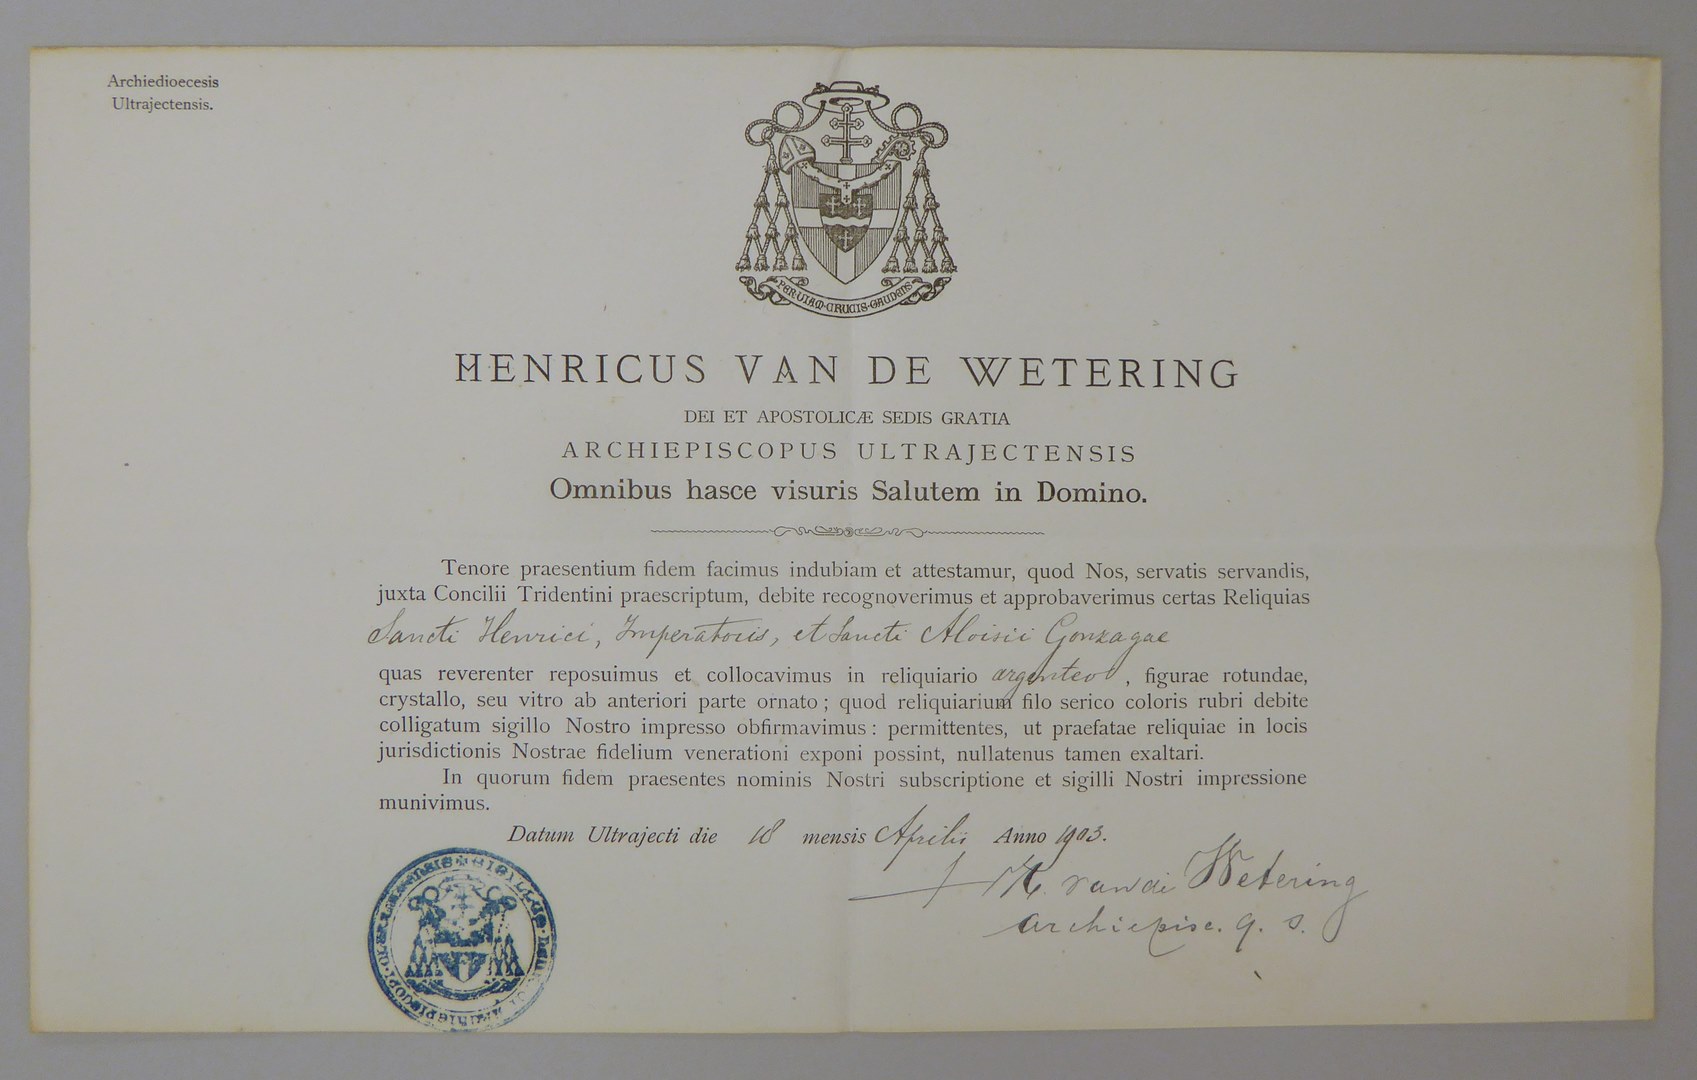 Archiedioecesis
Ultrajectensis.
PER·VIAM·CRUCIS·GAUDENS
HENRICUS VAN DE WETERING
DEI ET APOSTOLICÆ SEDIS GRATIA
ARCHIEPISCOPUS ULTRAJECTENSIS
Omnibus hasce visuris Salutem in Domino.
Tenore praesentium fidem facimus indubiam et attestamur, quod Nos, servatis servandis,
juxta Concilii Tridentini praescriptum, debite recognoverimus et approbaverimus certas Reliquias
Sancti Henrici, Imperatoris, et Sancti Aloisii Gonzagae
quas reverenter reposuimus et collocavimus in reliquiario argenteo, figurae rotundae,
crystallo, seu vitro ab anteriori parte ornato; quod reliquiarium filo serico coloris rubri debite
colligatum sigillo Nostro impresso obfirmavimus: permittentes, ut praefatae reliquiae in locis
jurisdictionis Nostrae fidelium venerationi exponi possint, nullatenus tamen exaltari.
In quorum fidem praesentes nominis Nostri subscriptione et sigilli Nostri impressione
munivimus.
Datum Ultrajecti die 18 mensis Aprilis Anno 1903.
H. van de Wetering
archiepisc. q. s.